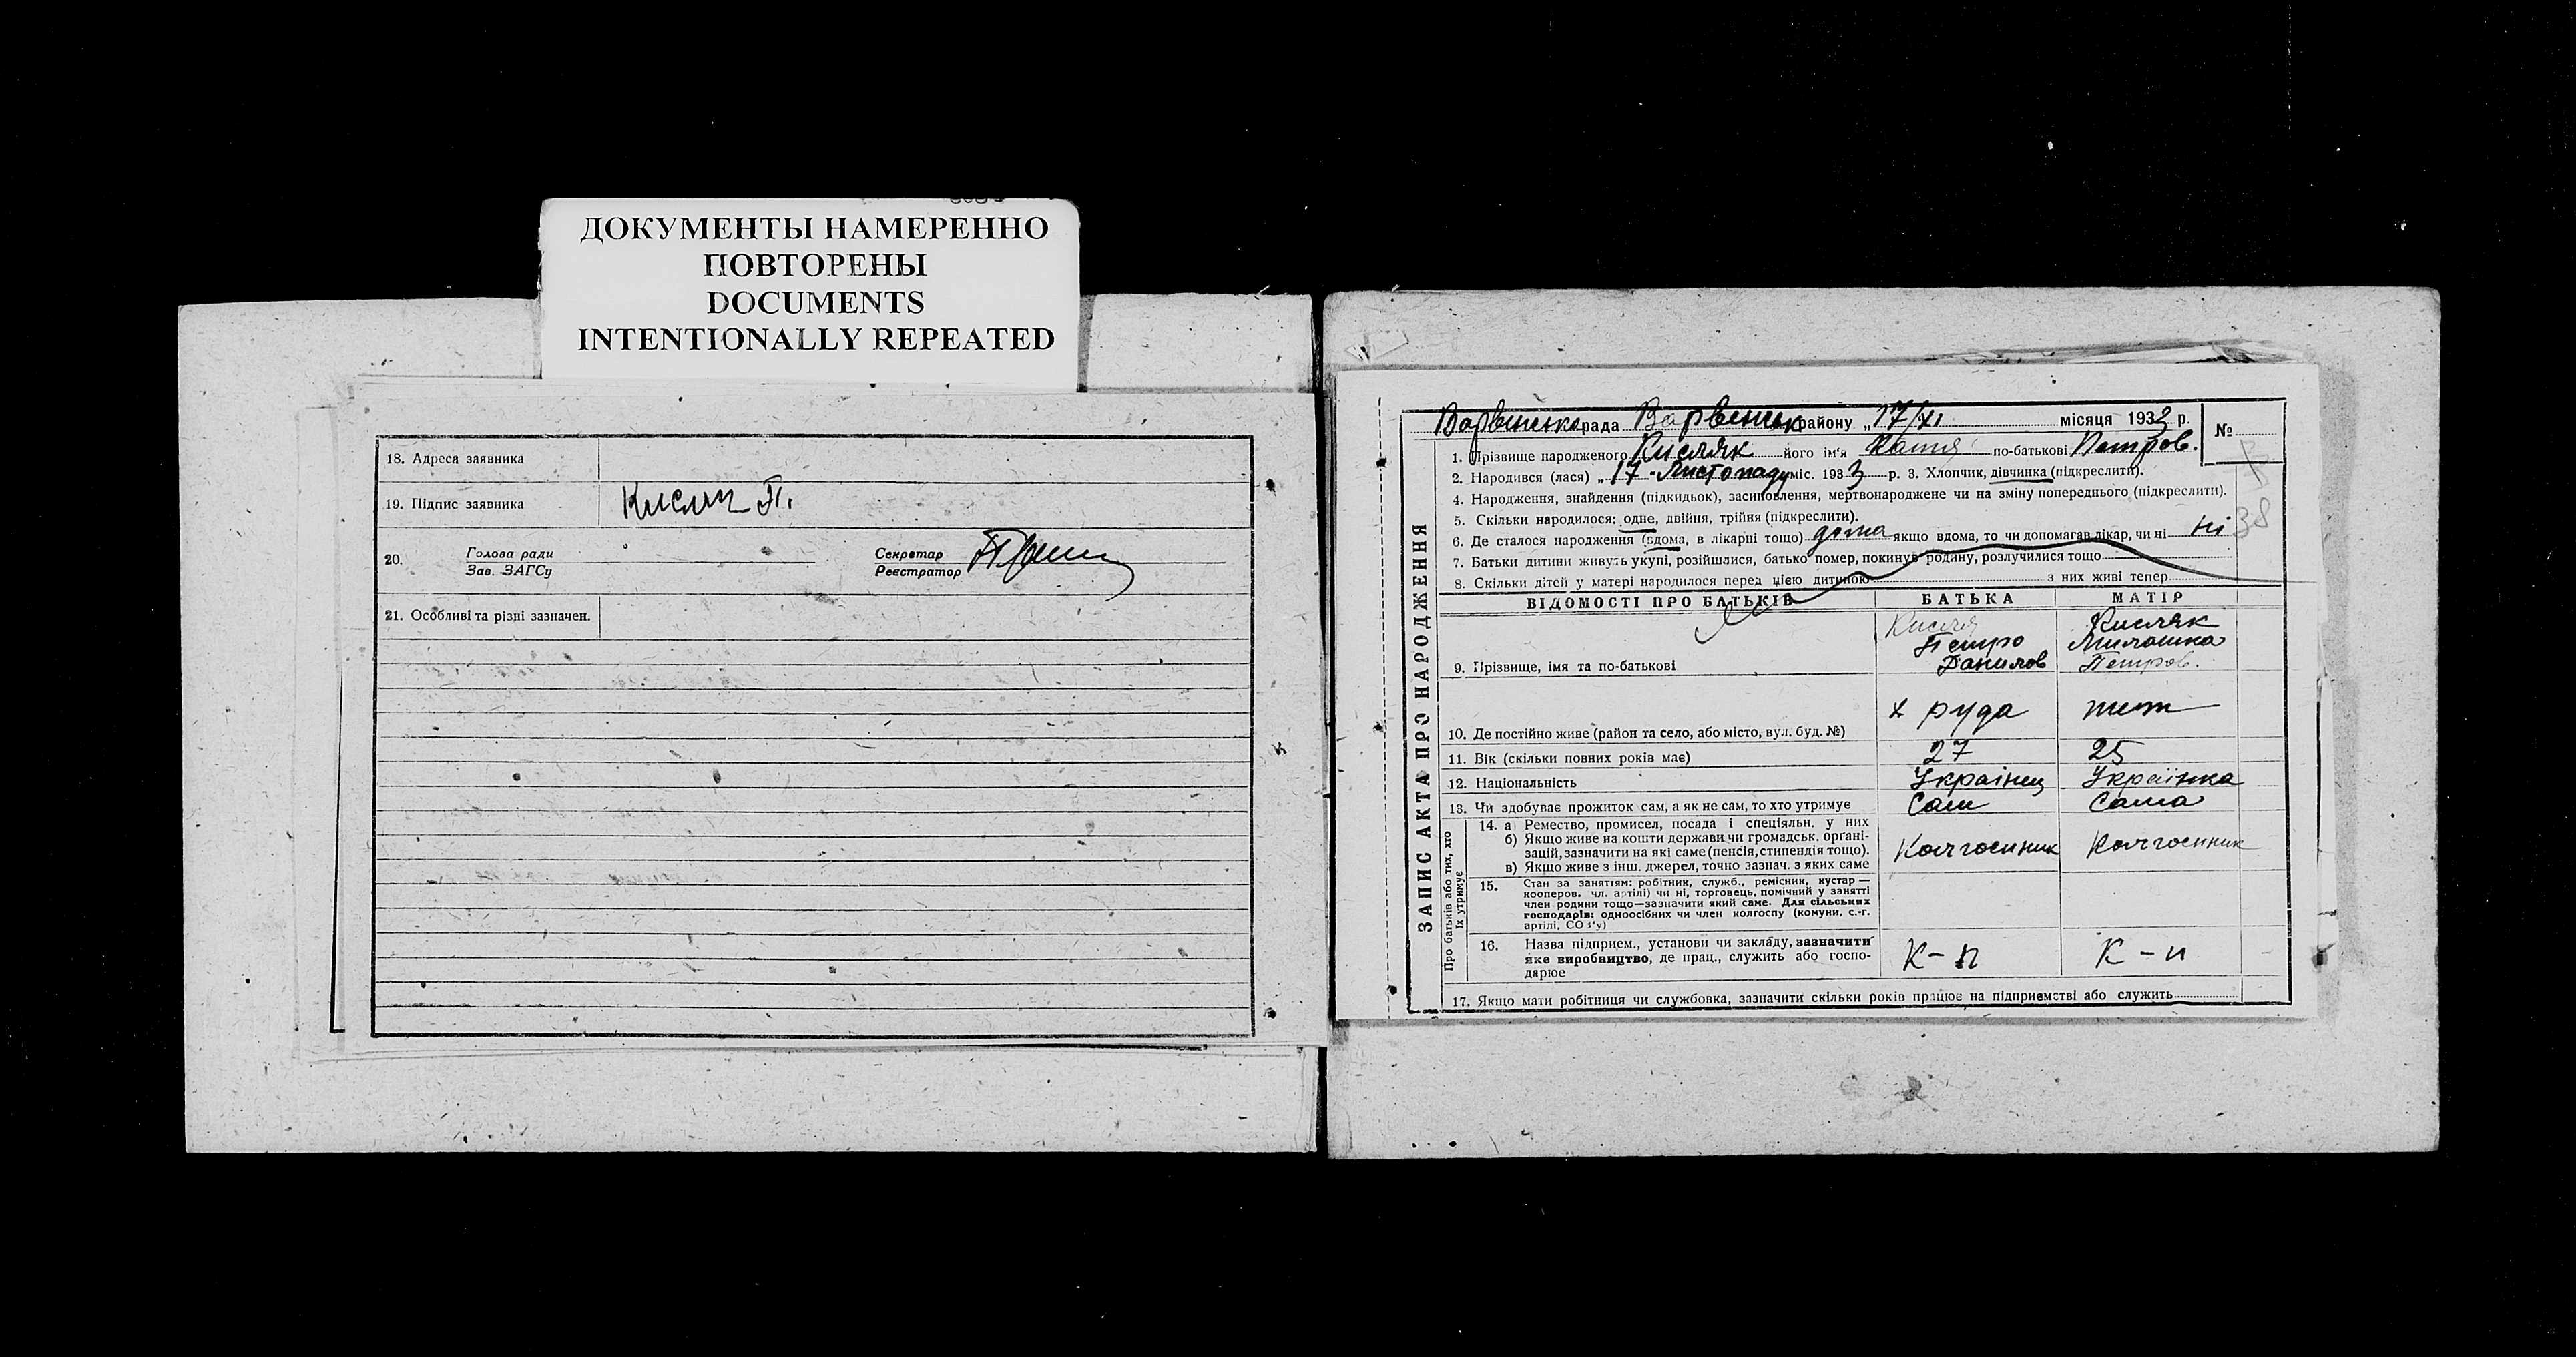 ДОКУМЕНТЫ НАМЕРЕННО
ПОВТОРЕНЫ
DOCUMENTS
INTENTIONALLY REPEATED
18. Адреса заявника
19. Підпис заявника
20. Голова ради
Зав. ЗАГСу
Секретар
Реєстратор
21. Особливі та різні зазначен.
ЗАПИС АКТА ПРО НАРОДЖЕННЯ
рада району „17/XI місяця 1933 р. №
1. Прізвище народженого Кисляк його ім'я Катя по-батькові Петров.
2. Народився (лася) „17 Листопаду міс. 1933 р. 3. Хлопчик, дівчинка (підкреслити).
4. Народження, знайдення (підкидьок), засиновлення, мертвонароджене чи на зміну попереднього (підкреслити).
5. Скільки народилося: одне, двійня, трійня (підкреслити).
38
6. Де сталося народження (вдома, в лікарні тощо) дома якщо вдома, то чи допомагав лікар, чи ні ні
7. Батьки дитини живуть укупі, розійшлися, батько помер, покинув родину, розлучилися тощо
8. Скільки дітей у матері народилося перед цією дитиною з них живі тепер
ВІДОМОСТІ ПРО БАТЬКІВ БАТЬКА МАТІР
Кисляк
Петро
Данилов
Петров.
9. Прізвище, імя та по-батькові
х руда
10. Де постійно живе (район та село, або місто, вул. буд. №)
11. Вік (скільки повних років має) 27 25
12. Національність Українец Українка
13. Чи здобуває прожиток сам, а як не сам, то хто утримує Сам Сама
Про батьків або тих, хто їх утримує
14. а) Ремество, промисел, посада і спеціяльн. у них
б) Якщо живе на кошти держави чи громадськ. органі-
зацій, зазначити на які саме (пенсія, стипендія тощо).
в) Якщо живе з інш. джерел, точно зазнач. з яких саме
Колгоспник Колгоспник
15. Стан за заняттям: робітник, служб., ремісник, кустар —
кооперов. чл. артілі) чи ні, торговець, помічний у занятті
член родини тощо—зазначити який саме. Для сільських
господарів: одноосібних чи член колгоспу (комуни, с.-г.
артілі, СОЗ'у)
16. Назва підприєм., установи чи закладу, зазначити
яке виробництво, де прац., служить або госпо-
дарює
К-п К-п
17. Якщо мати робітниця чи службовка, зазначити скільки років працює на підприємстві або служить